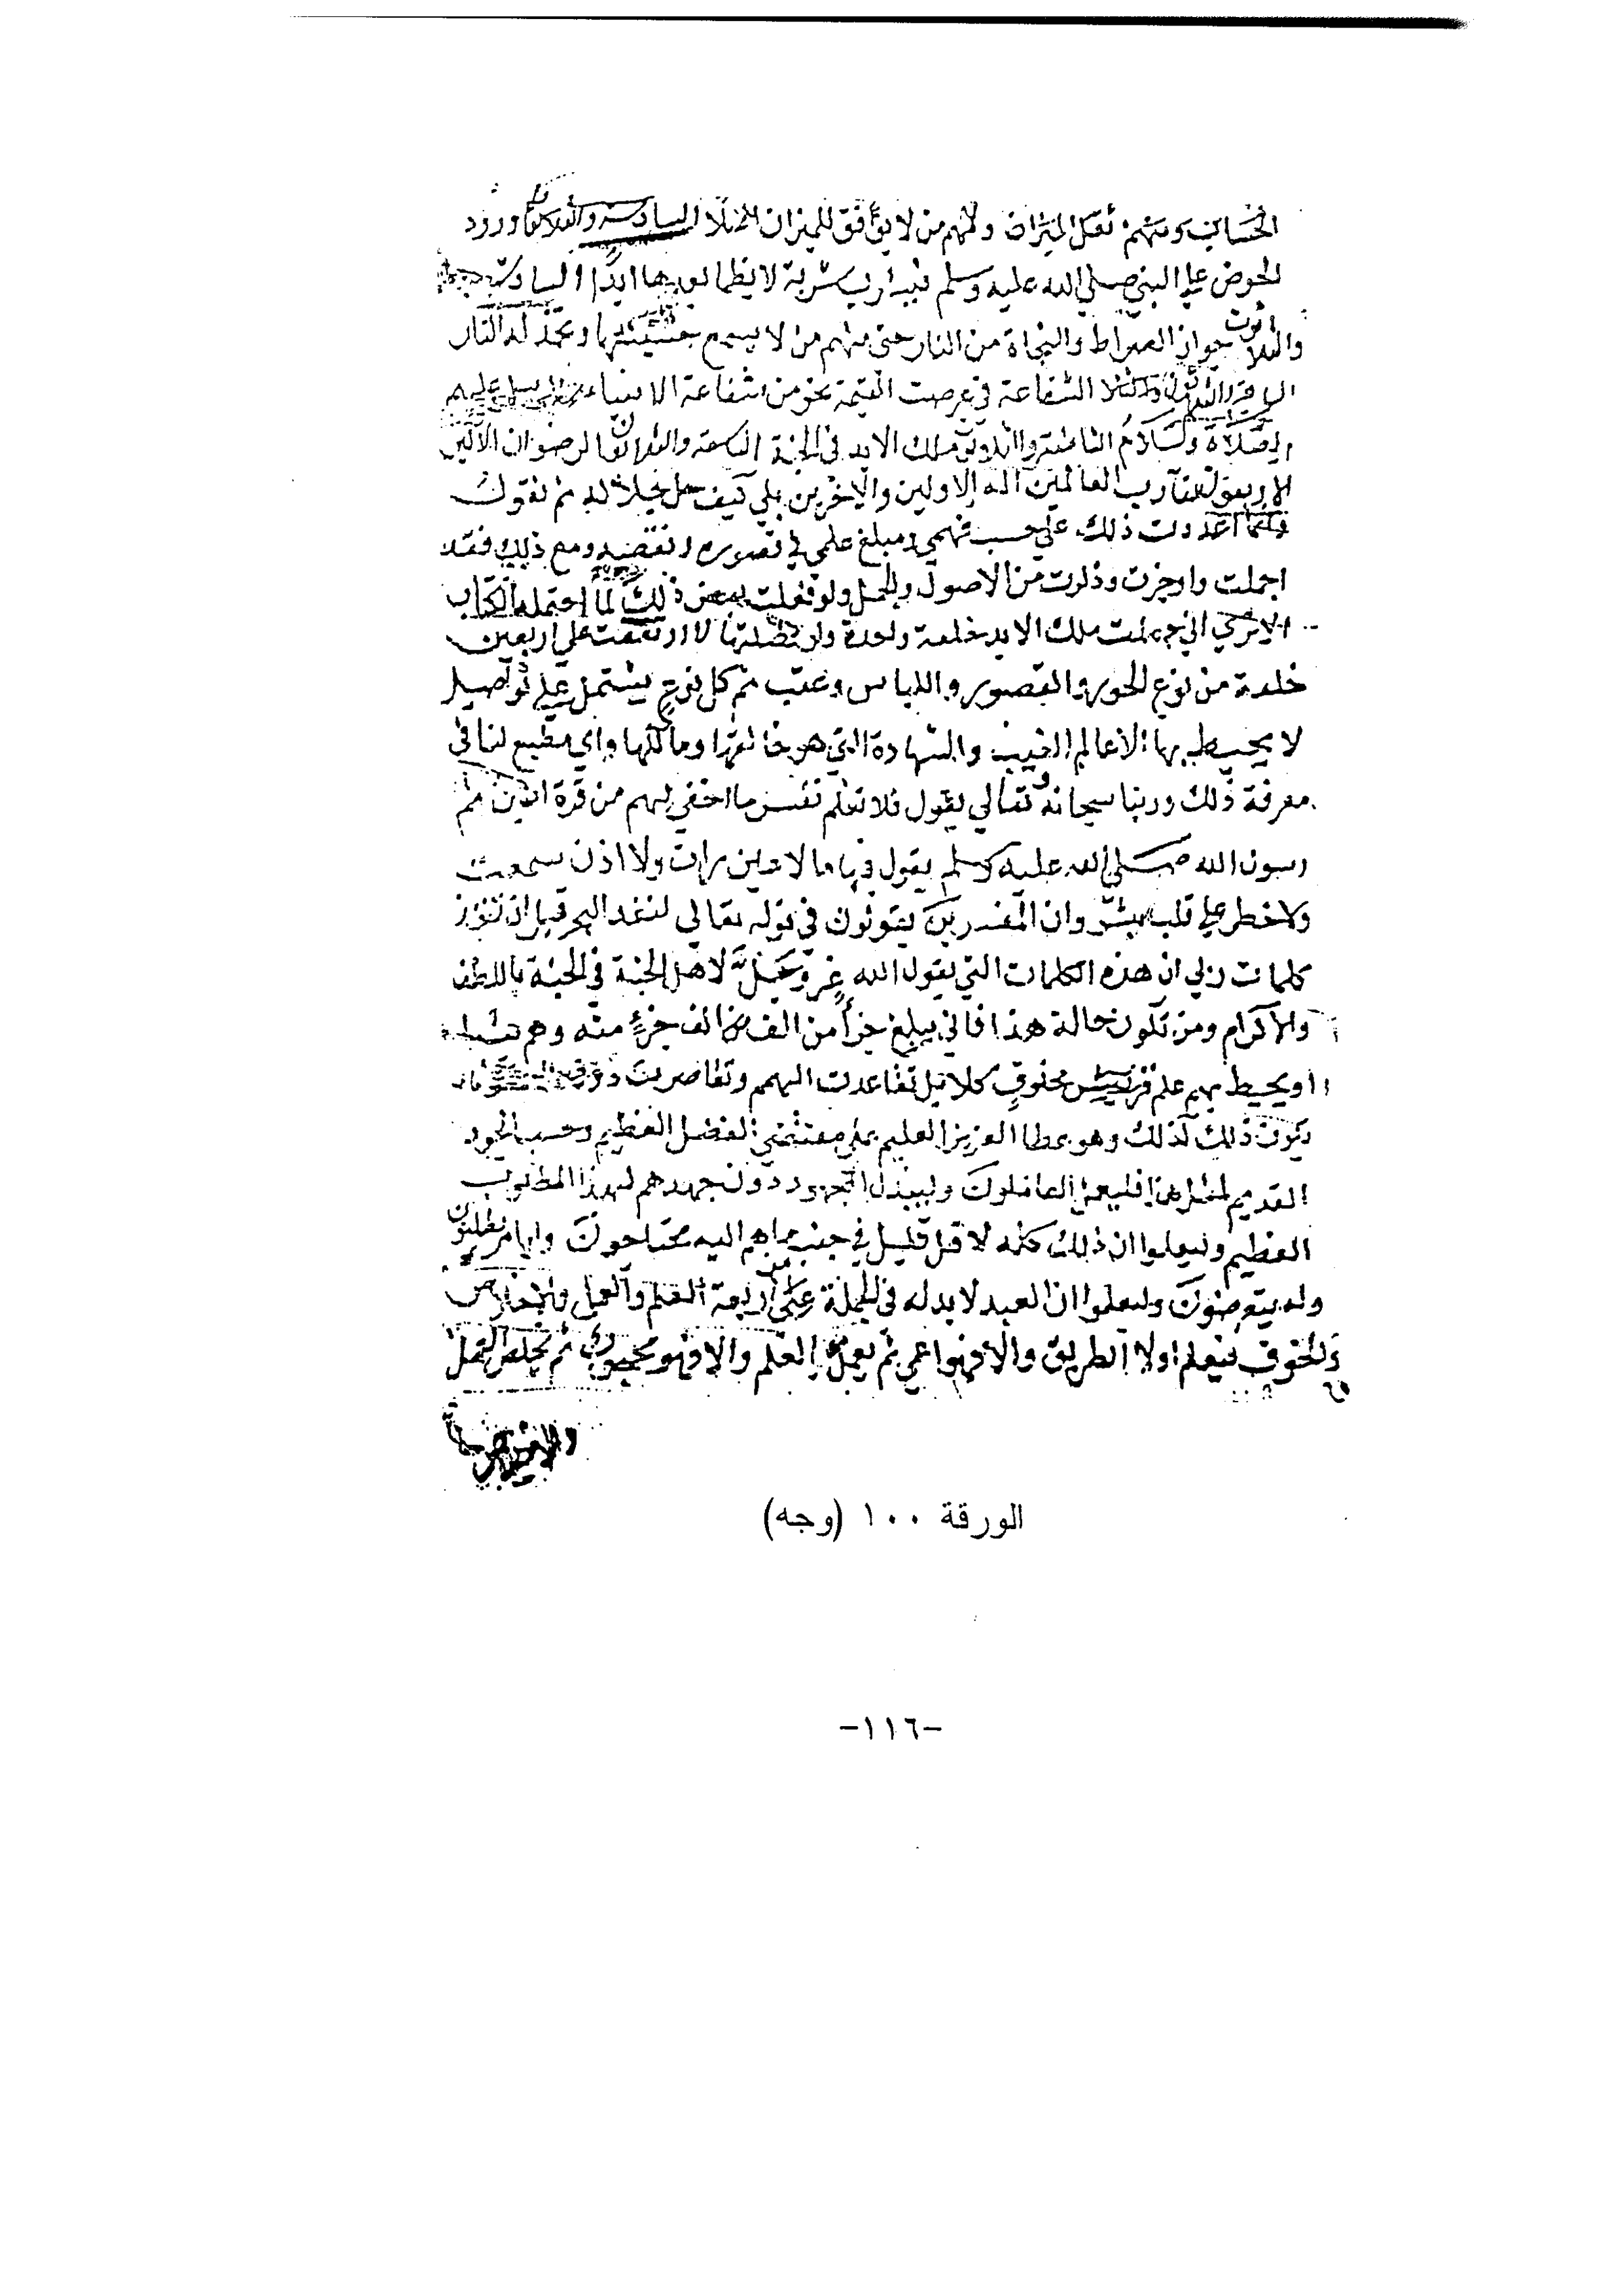 الحساب ومنهم ثقل الميزان ومنهم من لا يوافق للميزان اصلا الخامسة والثلاثون ورود
الحوض علي النبي صلي الله عليه وسلم فيشرب شربة لا يظما بعدها ابدا السادسة
والثلاثون جواز الصراط والنجاة من النار حتي منهم من لا يسمع حسيسها وتخمد له النار
والثلاثون الشفاعة في عرصات القيمة نحو من شفاعة الانبياء والرسل عليهم
الصلاة والسلام الثامنة والثلاثون ملك الابد في الجنة التاسعة والثلاثون الرضوان الاكبر
الاربعون لقا رب العالمين اله الاولين والاخرين بلي كيف جل جلاله ثم نقول
وانما عددت ذلك علي حسب فهمي ومبلغ علمي في قصوره ونقصه ومع ذلك فقد
اجملت واوجزت وذكرت من الاصول والجمل ولو فصلت بعض ذلك لما احتمله الكتاب
الا تري اني جعلت ملك الابد خلعة واحدة ولو فصلتها لارتفعت علي اربعين
خلعة من نوع الحور والقصور واللباس وغير ثم كل نوع يشتمل علي تفاصيل
لا يحيط بها الا عالم الغيب والشهادة التي هو خالقها ومالكها واي مطمع لنا في
معرفة ذلك وربنا سبحانه وتعالي يقول فلا تعلم نفس ما اخفي لهم من قرة اعين ثم
رسول الله صلي الله عليه وسلم يقول فيها ما لا عين رات ولا اذن سمعت
ولا خطر علي قلب بشر وان المفسرين يقولون في قوله تعالي لنفد البحر قبل ان تنفد
كلمات ربي ان هذه الكلمات التي يقول الله عز وجل لاهل الجنة في الجنة باللطف
والاكرام ومن تكون حالة هذا فاني يبلغ جزأ من الف الف جزء منه وهم
او يحيط بهم علم مخلوق كلا بل تقاعدت الهمم وتقاصرت دونه
يكون ذلك كذلك وهو عطا العزيز العليم علي مقتضي الفضل العظيم وحسب الجود
القديم لمثل هذا فليعمل العاملون وليبذل المجهود دون جهدهم لهذا المطلوب
العظيم وليعلموا ان ذلك كله لاقل قليل في جنب ما هم اليه محتاجون واياه يطلبون
وله يتعرضون وليعلموا ان العبد لا بد له في الجملة من اربعة العلم والعمل والاخلاص
والخوف فيعلم اولا الطريق والا فهو اعمي ثم يعمل بالعلم والا فهو محجوب ثم يخلص العمل
والا
الورقة ١٠٠ (وجه)
-١١٦-